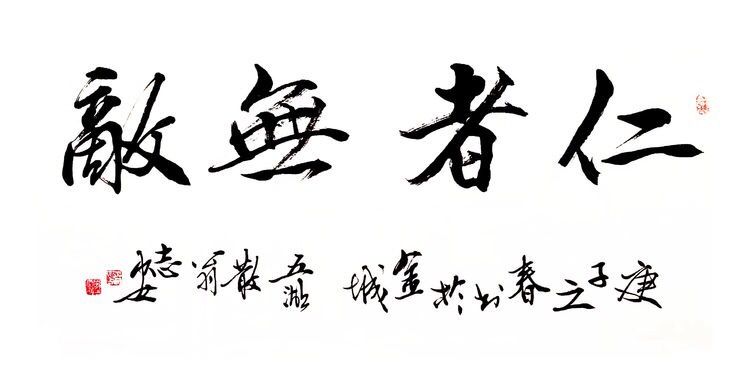 仁者無敵
庚子之春書於金城 五湖散翁志安